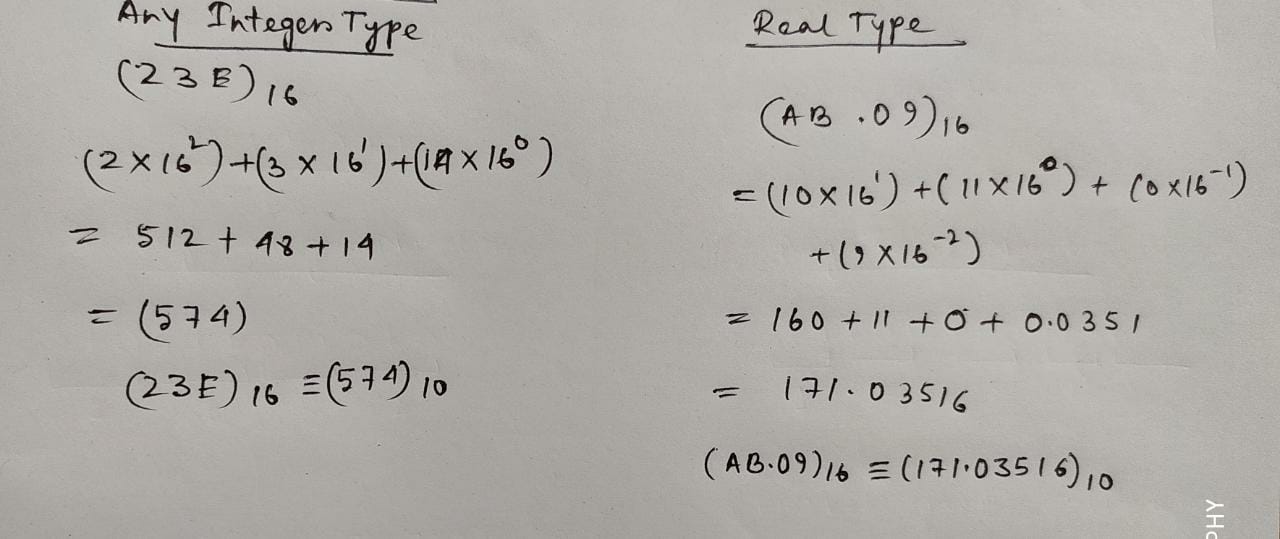 Any Integers Type
(23E)16
(2×16²)+(3×16¹)+(14×16⁰)
= 512 + 48 + 14
= (574)
(23E)16 ≡(574)10
Real Type
(AB.09)16
=(10×16¹)+(11×16⁰)+(0×16⁻¹)
+(9×16⁻²)
= 160 + 11 + 0 + 0.0351
= 171.03516
(AB.09)16 ≡(171.03516)10
PHY